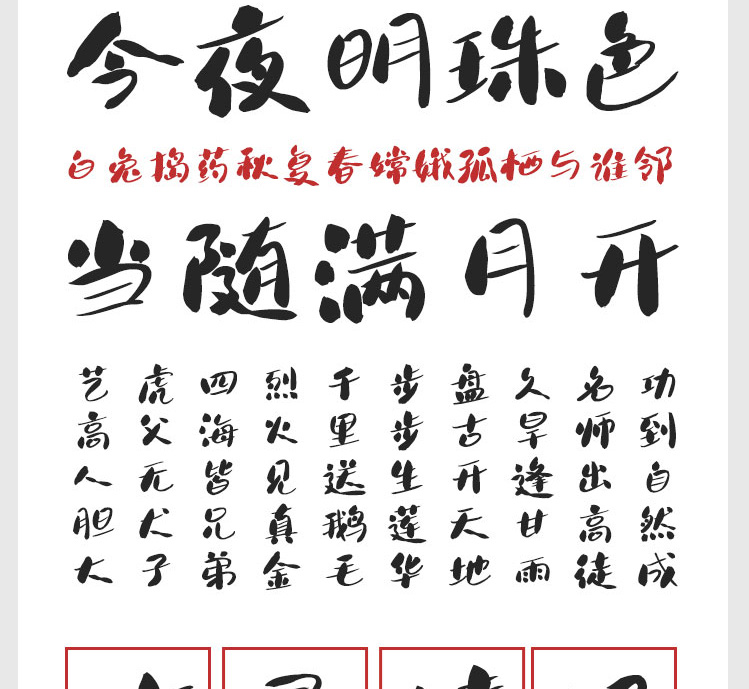 今夜明珠色
白兔捣药秋复春嫦娥孤栖与谁邻
当随满月开
艺高人胆大
虎父无犬子
四海皆兄弟
烈火见真金
千里送鹅毛
步步生莲华
盘古开天地
久旱逢甘雨
名师出高徒
功到自然成